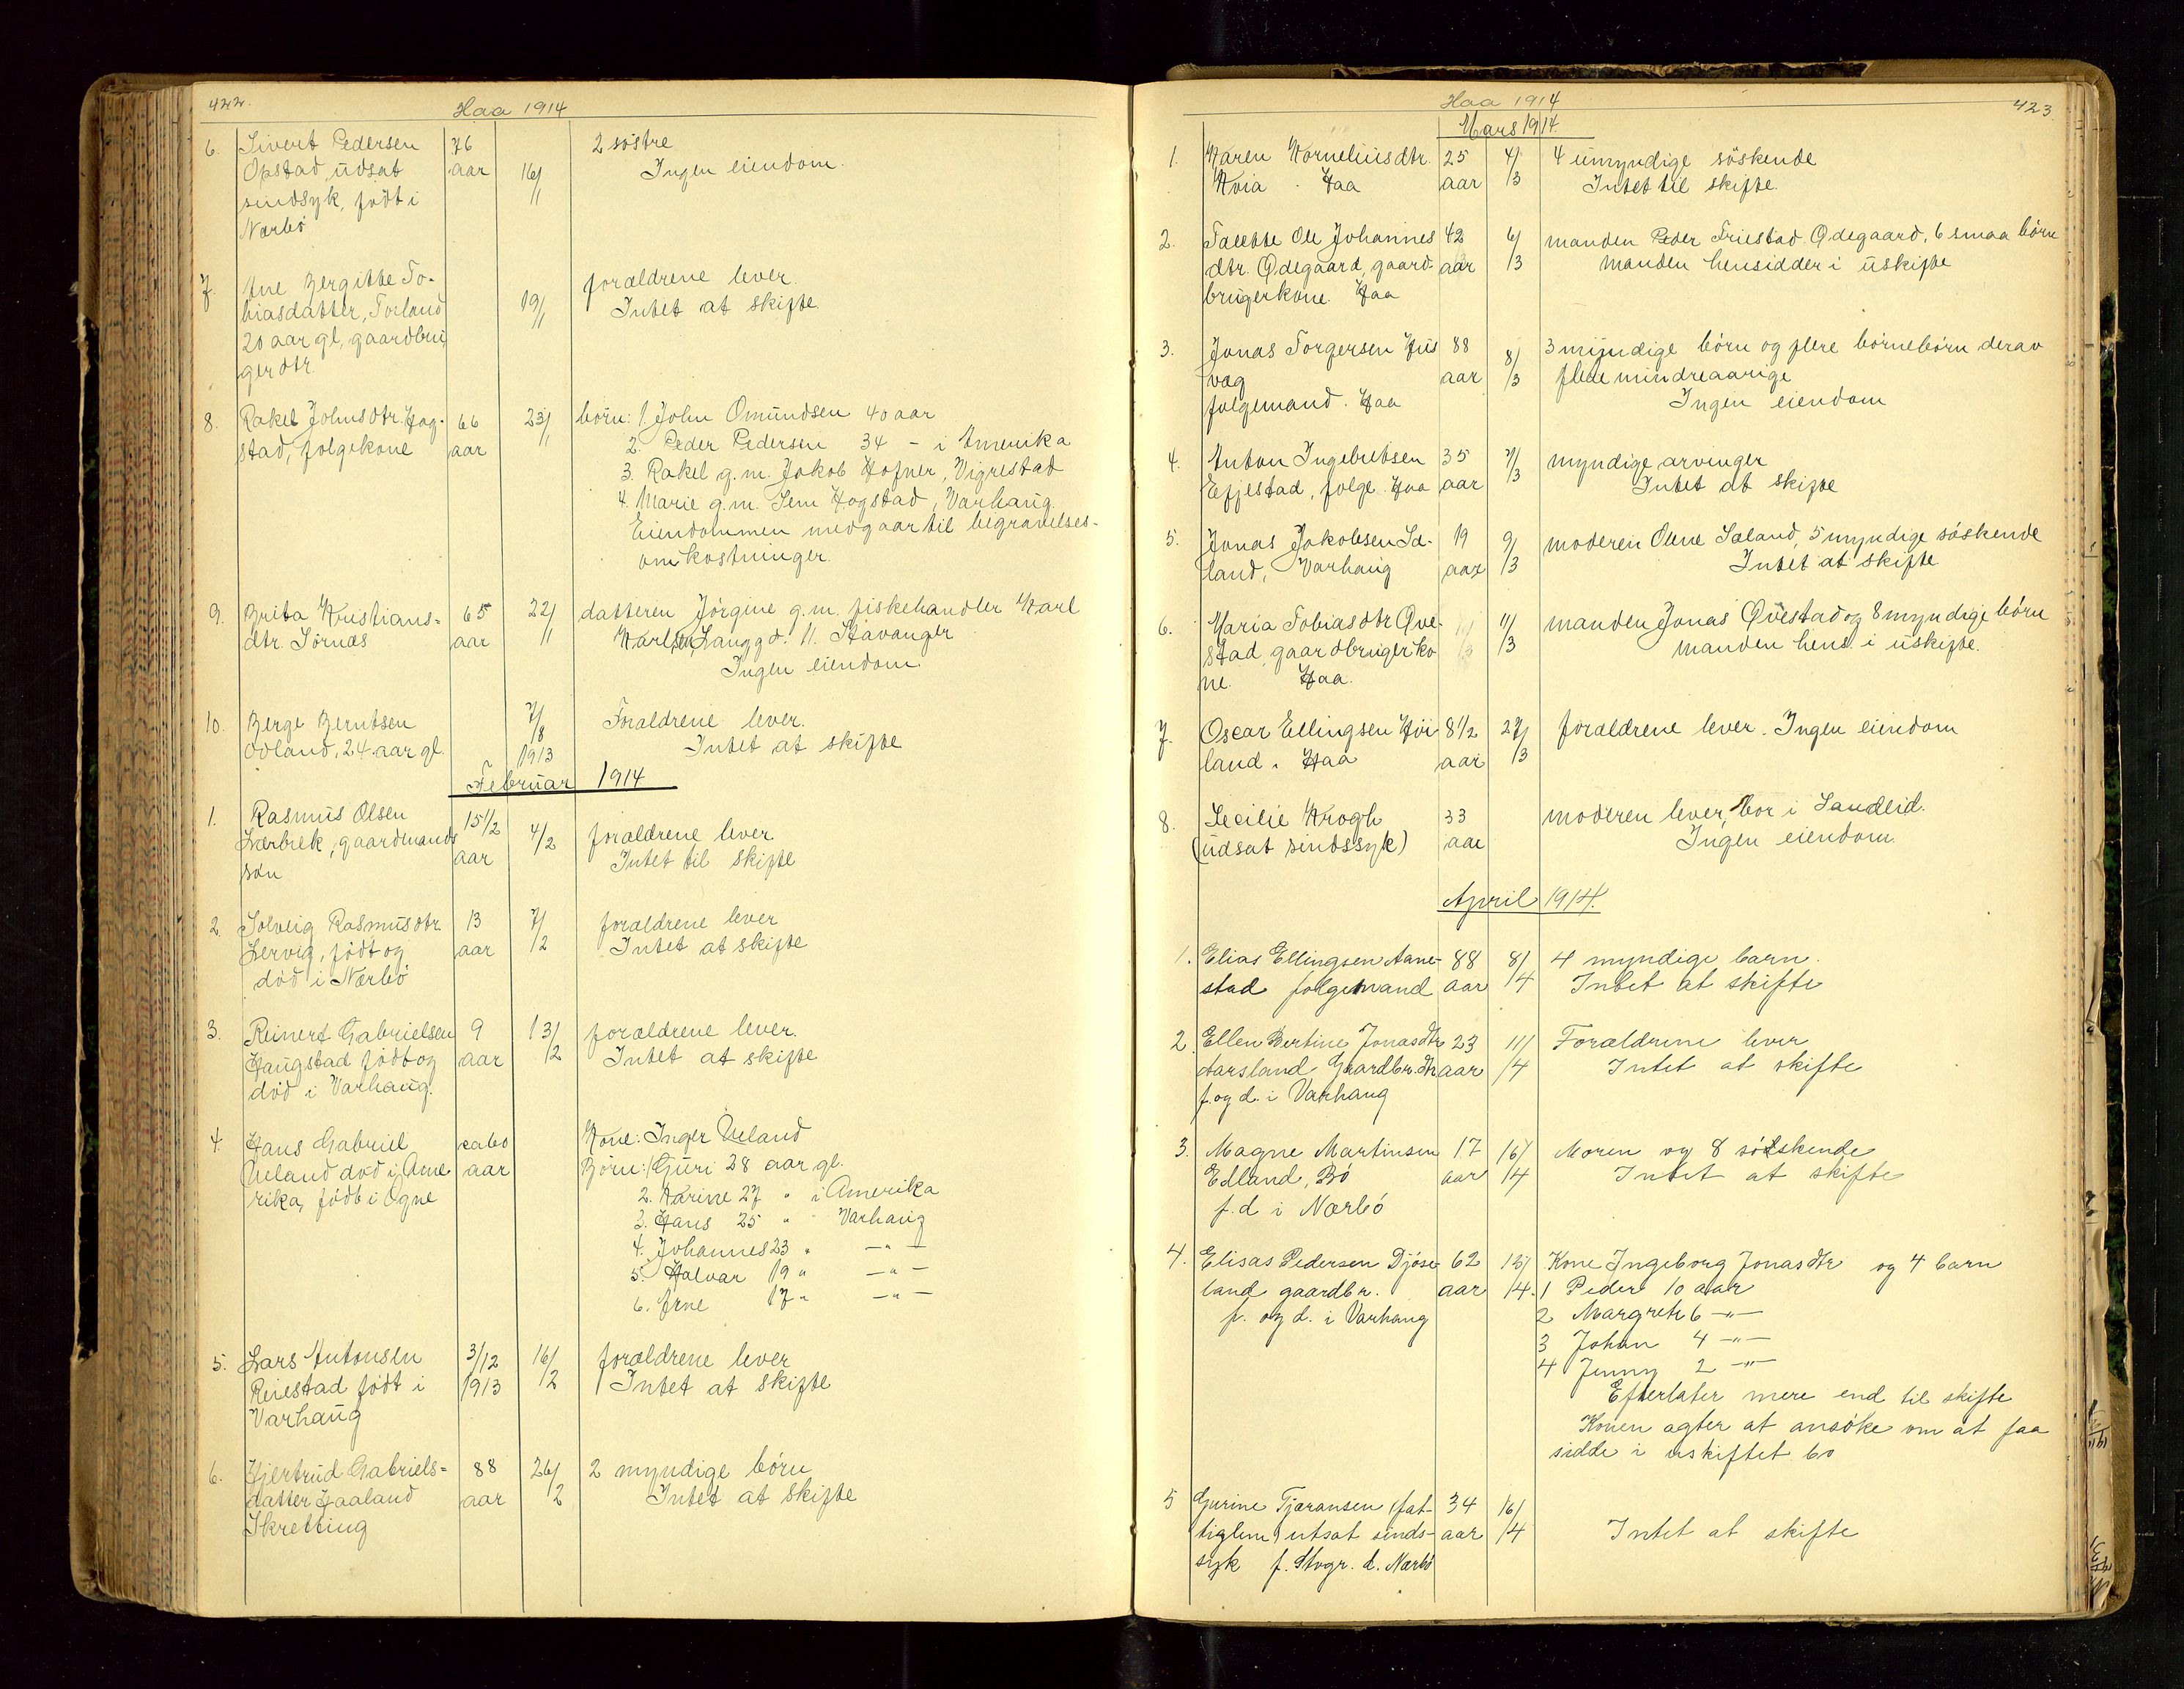 422.
Haa 1914
6. Sivert Pedersen 76 2 søstre
Opstad, udsat aar 16/1 Ingen eiendom.
sindsyk, født i
Nærbø
7. Ane Bergitte To- forældrene lever.
biasdatter, Torland 19/1 Intet at skifte.
20 aar gl, gaardbru,
gerdtr.
8. Rakel Johnsdtr. Hog- 66 23/1 børn: 1. John Omundsen 40 aar
stad, følgekone aar 2. Peder Pedersen 34 - i Amerika
3. Rakel g.m. Jakob Hofner, Vigrestad
4. Marie g.m. Sem Hogstad, Varhaug.
Eiendommen medgaar til begravelses-
omkostninger.
9. Brita Kristians= 65 22/1 datteren Jørgine g.m. fiskehandler Karl
dtr. Sørnæs aar Karlsen, Langgd. 11. Stavanger
Ingen eiendom.
10. Berge Berntsen 7/8 Forældrene lever.
Odland, 24 aar gl. 1913 Intet at skifte
Februar 1914
1. Rasmus Olsen 15 1/2 4/2 forældrene lever
Lerbrek, gaardmands aar Intet til skifte
søn
2. Solveig Rasmusdtr. 13 7/2 forældrene lever
Lervig, født og aar Intet at skifte
død i Nærbø
3. Reinert Gabrielsen 9 13/2 forældrene lever.
Haugstad født og aar Intet at skifte
død i Varhaug.
4. Hans Gabriel Kone: Inger Ueland
Ueland død i Ame aar Børn: 1. Guri 28 aar gl.
rika, født i Ogne 2. Karine 27 " i Amerika
3. Hans 25 " Varhaug
4. Johannes 23 " — " —
5. Halvar 19 " — " —
6. Arne 17 " — " —
5. Lars Antonsen 3/12 16/2 forældrene lever
Reiestad født i 1913 Intet at skifte
Varhaug
6. Hjertrud Gabriels= 88 26/2 2 myndige børn
datter Haaland aar Intet at skifte
Skretting
423
Haa 1914
Mars 1914.
1. Karen Korneliusdtr. 25 4/3 4 umyndige søskende
Kvia. Haa aar Intet til skifte.
2. Talette Ole Johannes 42 6/3 manden Peder Friestad Ødegaard, 6 smaa børn
dtr. Ødegaard, gaard- aar manden hensidder i uskifte
brugerkone. Haa
3. Jonas Torgersen Hus 88 8/3 3 myndige børn og flere børnebørn derav
vag aar flere mindreaarige
følgemand. Haa Ingen eiendom
4. Anton Ingebretsen 35 7/3 myndige arvinger
Efjestad, følge. Haa aar Intet at skifte
5. Jonas Jakobsen Sæ- 19 9/3 moderen Olene Sæland, 5 myndige søskende
land, Varhaug aar Intet at skifte
6. Maria Tobiasdtr Øve- 11/3 manden Jonas Øvestad og 8 myndige børn
stad, gaardbrugerko manden hens. i uskifte.
ne. Haa.
7. Oscar Ellingsen Høi 8 1/2 27/3 forældrene lever. Ingen eiendom
land. Haa aar
8. Cecilie Krogh 33 moderen lever, bor i Sandeid.
(udsat sindssyk) aar Ingen eiendom.
April 1914.
1. Elias Ellingsen Aane- 88 8/4 4 myndige barn.
stad følgemand aar Intet at skifte
2. Ellen Bertine Jonasdtr 23 11/4 Forældrene lever
Aarsland Gaardbr.dtr aar Intet at skifte
f. og d. i Varhaug
3. Magne Martinsen 17 16/4 Moren og 8 søskende
Edland, Bø aar Intet at skifte
f. d i Nærbø
4. Elisas Pedersen Djøse 62 12/4 Kone Ingeborg Jonasdtr og 4 barn
land gaardbr. aar 1 Peder 10 aar
f. og d. i Varhaug 2 Margrete 6 —"—
3 Johan 4 —"—
4 Jenny 2 —"—
Efterlater mere end til skifte
Konen agter at ansøke om at faa
sidde i uskiftet bo
5 Gurine Tjæransen (fat- 34 16/4
tiglem) utsat sinds- aar Intet at skifte
syk f. Stvgr. d. Nærbø